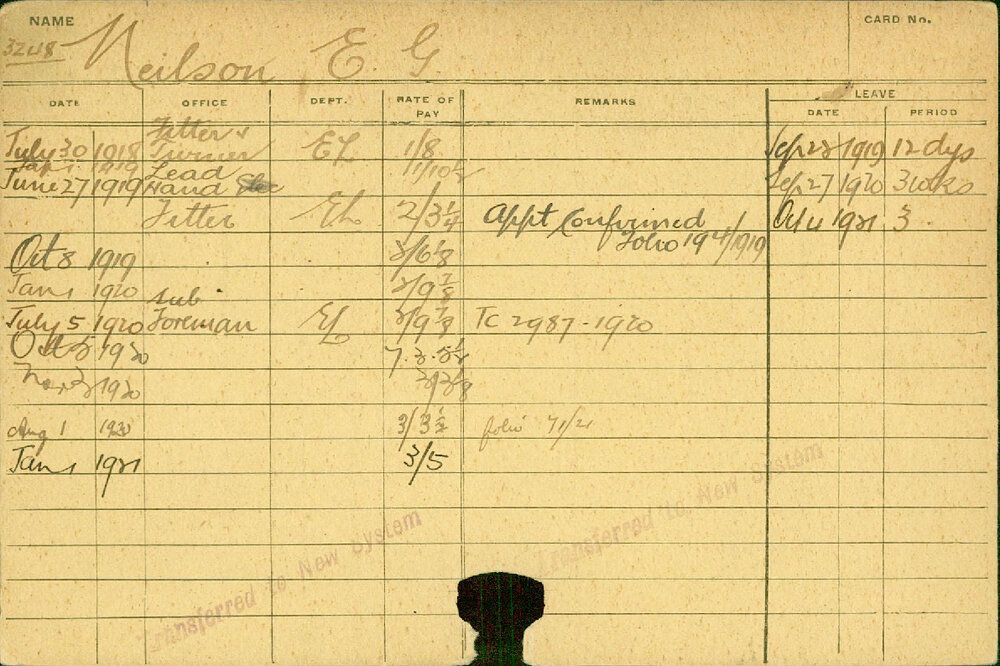 NAME
CARD No.
3248
Neilson E. G.
DATE OFFICE DEPT. RATE OF PAY REMARKS LEAVE
DATE PERIOD
Fitter &
July 30 1918 Turner EL 1/8 Sep 23 1919 12 dys
Jan 1 1919 Lead 1/10½
June 27 1919 Hand Sep 27 1920 3 wks
Fitter EL 2/3¼ Appt Confirmed Oct 4 1921 3
Folio 194/1919
Oct 8 1919 2/6⅛
Jan 1 1920 2/9⅞
Sub
July 5 1920 Foreman EL 2/9⅞ TC 2987-1920
Oct 5 1920
Nov 1920
Aug 1 1920 3/3½ folio 71/21
Jan 1 1921 3/5
Transferred to New System
Transferred to New System